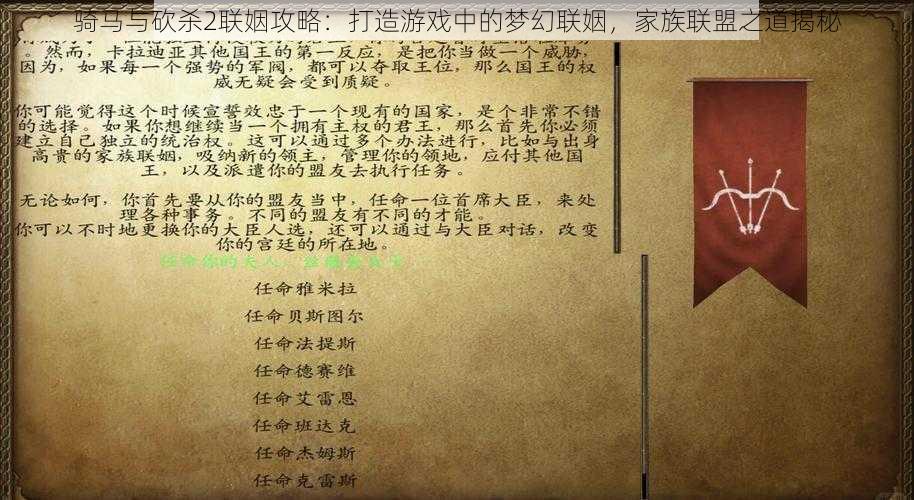 骑马与砍杀2联姻攻略：打造游戏中的梦幻联姻，家族联盟之道揭秘
。然而，卡拉迪亚其他国王的第一反应，是把你当做一个威胁，
因为，如果每一个强势的军阀，都可以夺取王位，那么国王的权
威无疑会受到质疑。
你可能觉得这个时候宣誓效忠于一个现有的国家，是个非常不错
的选择。如果你想继续当一个拥有主权的君王，那么首先你必须
建立自己独立的统治权。这可以通过多个办法进行，比如与出身
高贵的家族联姻，吸纳新的领主，管理你的领地，应付其他国
王，以及派遣你的盟友去执行任务。
无论如何，你首先要从你的盟友当中，任命一位首席大臣，来处
理各种事务。不同的盟友有不同的才能。
你可以不时地更换你的大臣人选，还可以通过与大臣对话，改变
你的宫廷的所在地。
任命你的夫人，
任命雅米拉
任命贝斯图尔
任命法提斯
任命德赛维
任命艾雷恩
任命班达克
任命杰姆斯
任命克雷斯